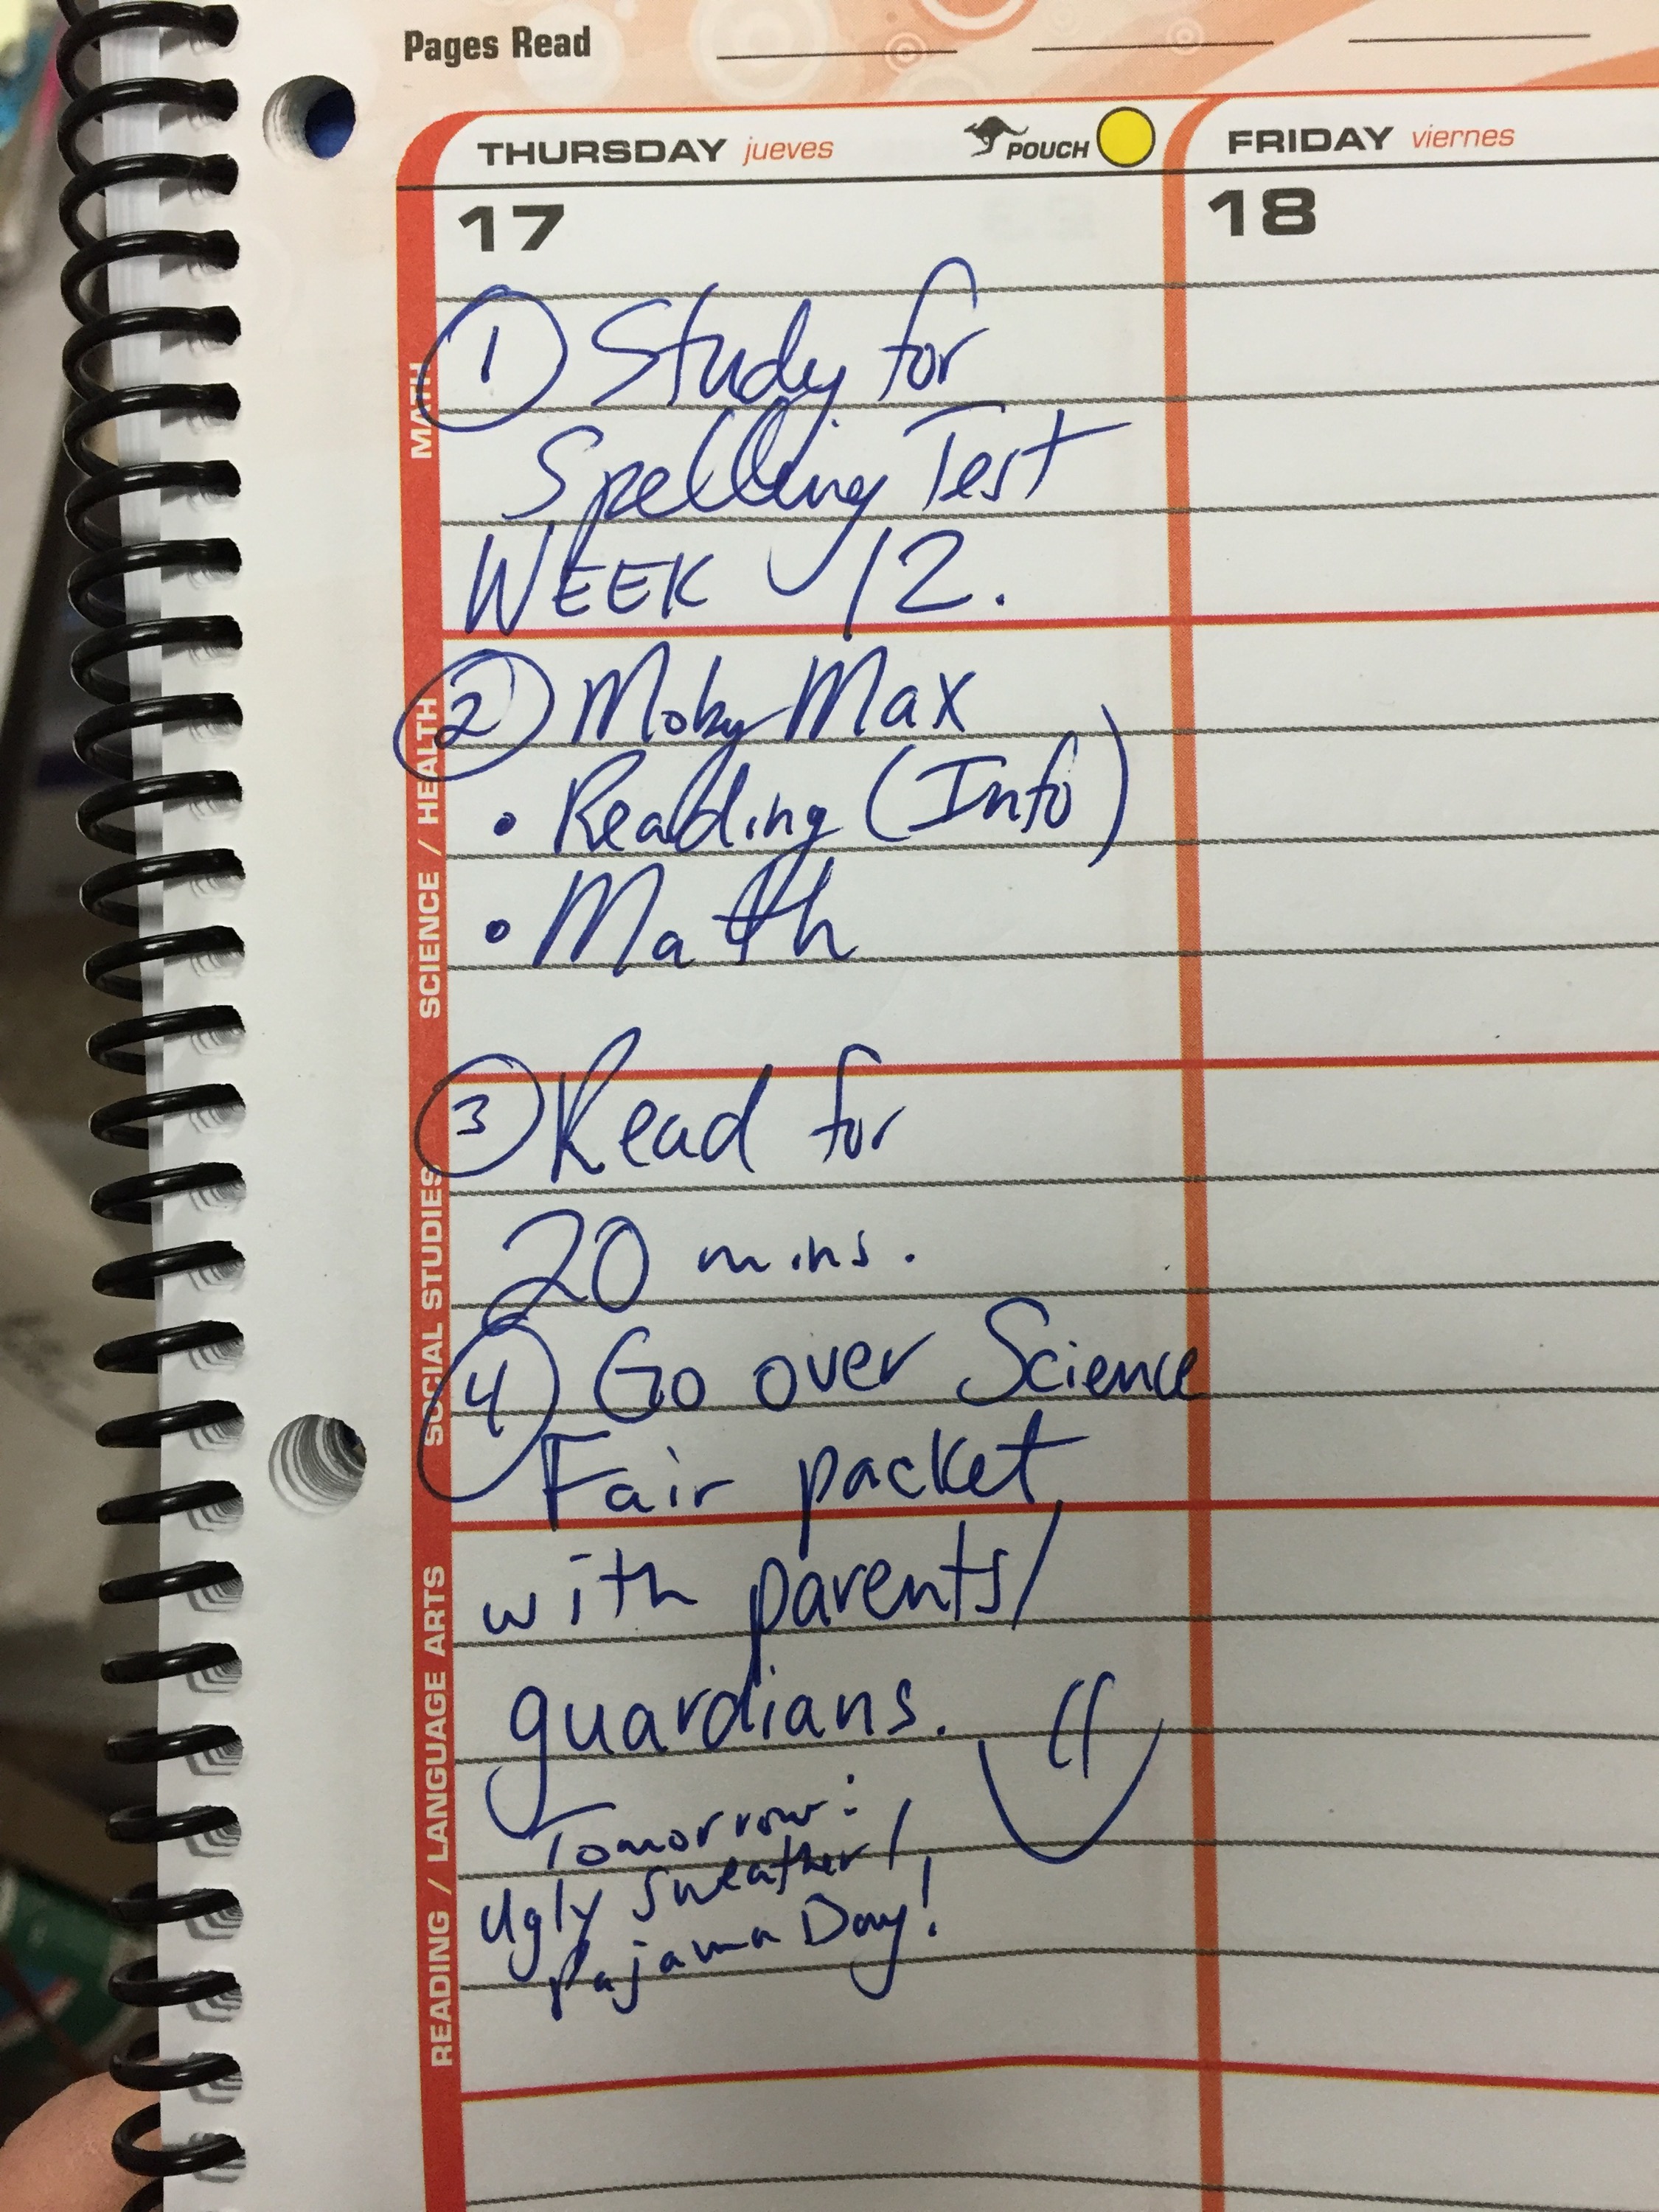 Pages Read
THURSDAY jueves
POUCH
FRIDAY viernes
17
18
MATH
① Study for
Spelling Test
WEEK 12.
SCIENCE / HEALTH
② Moby Max
• Reading (Info)
• Math
SOCIAL STUDIES
③ Read for
20 mins.
④ Go over Science
Fair packet
READING / LANGUAGE ARTS
with parents/
guardians.
Tomorrow:
Ugly Sweather/
Pajama Day!